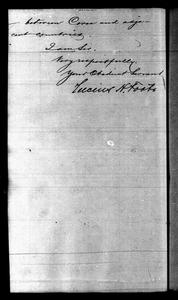 between Corea and adja-
cent countries.
I am Sir,
Very respectfully
Your Obedient Servant
Lucius H. Foote